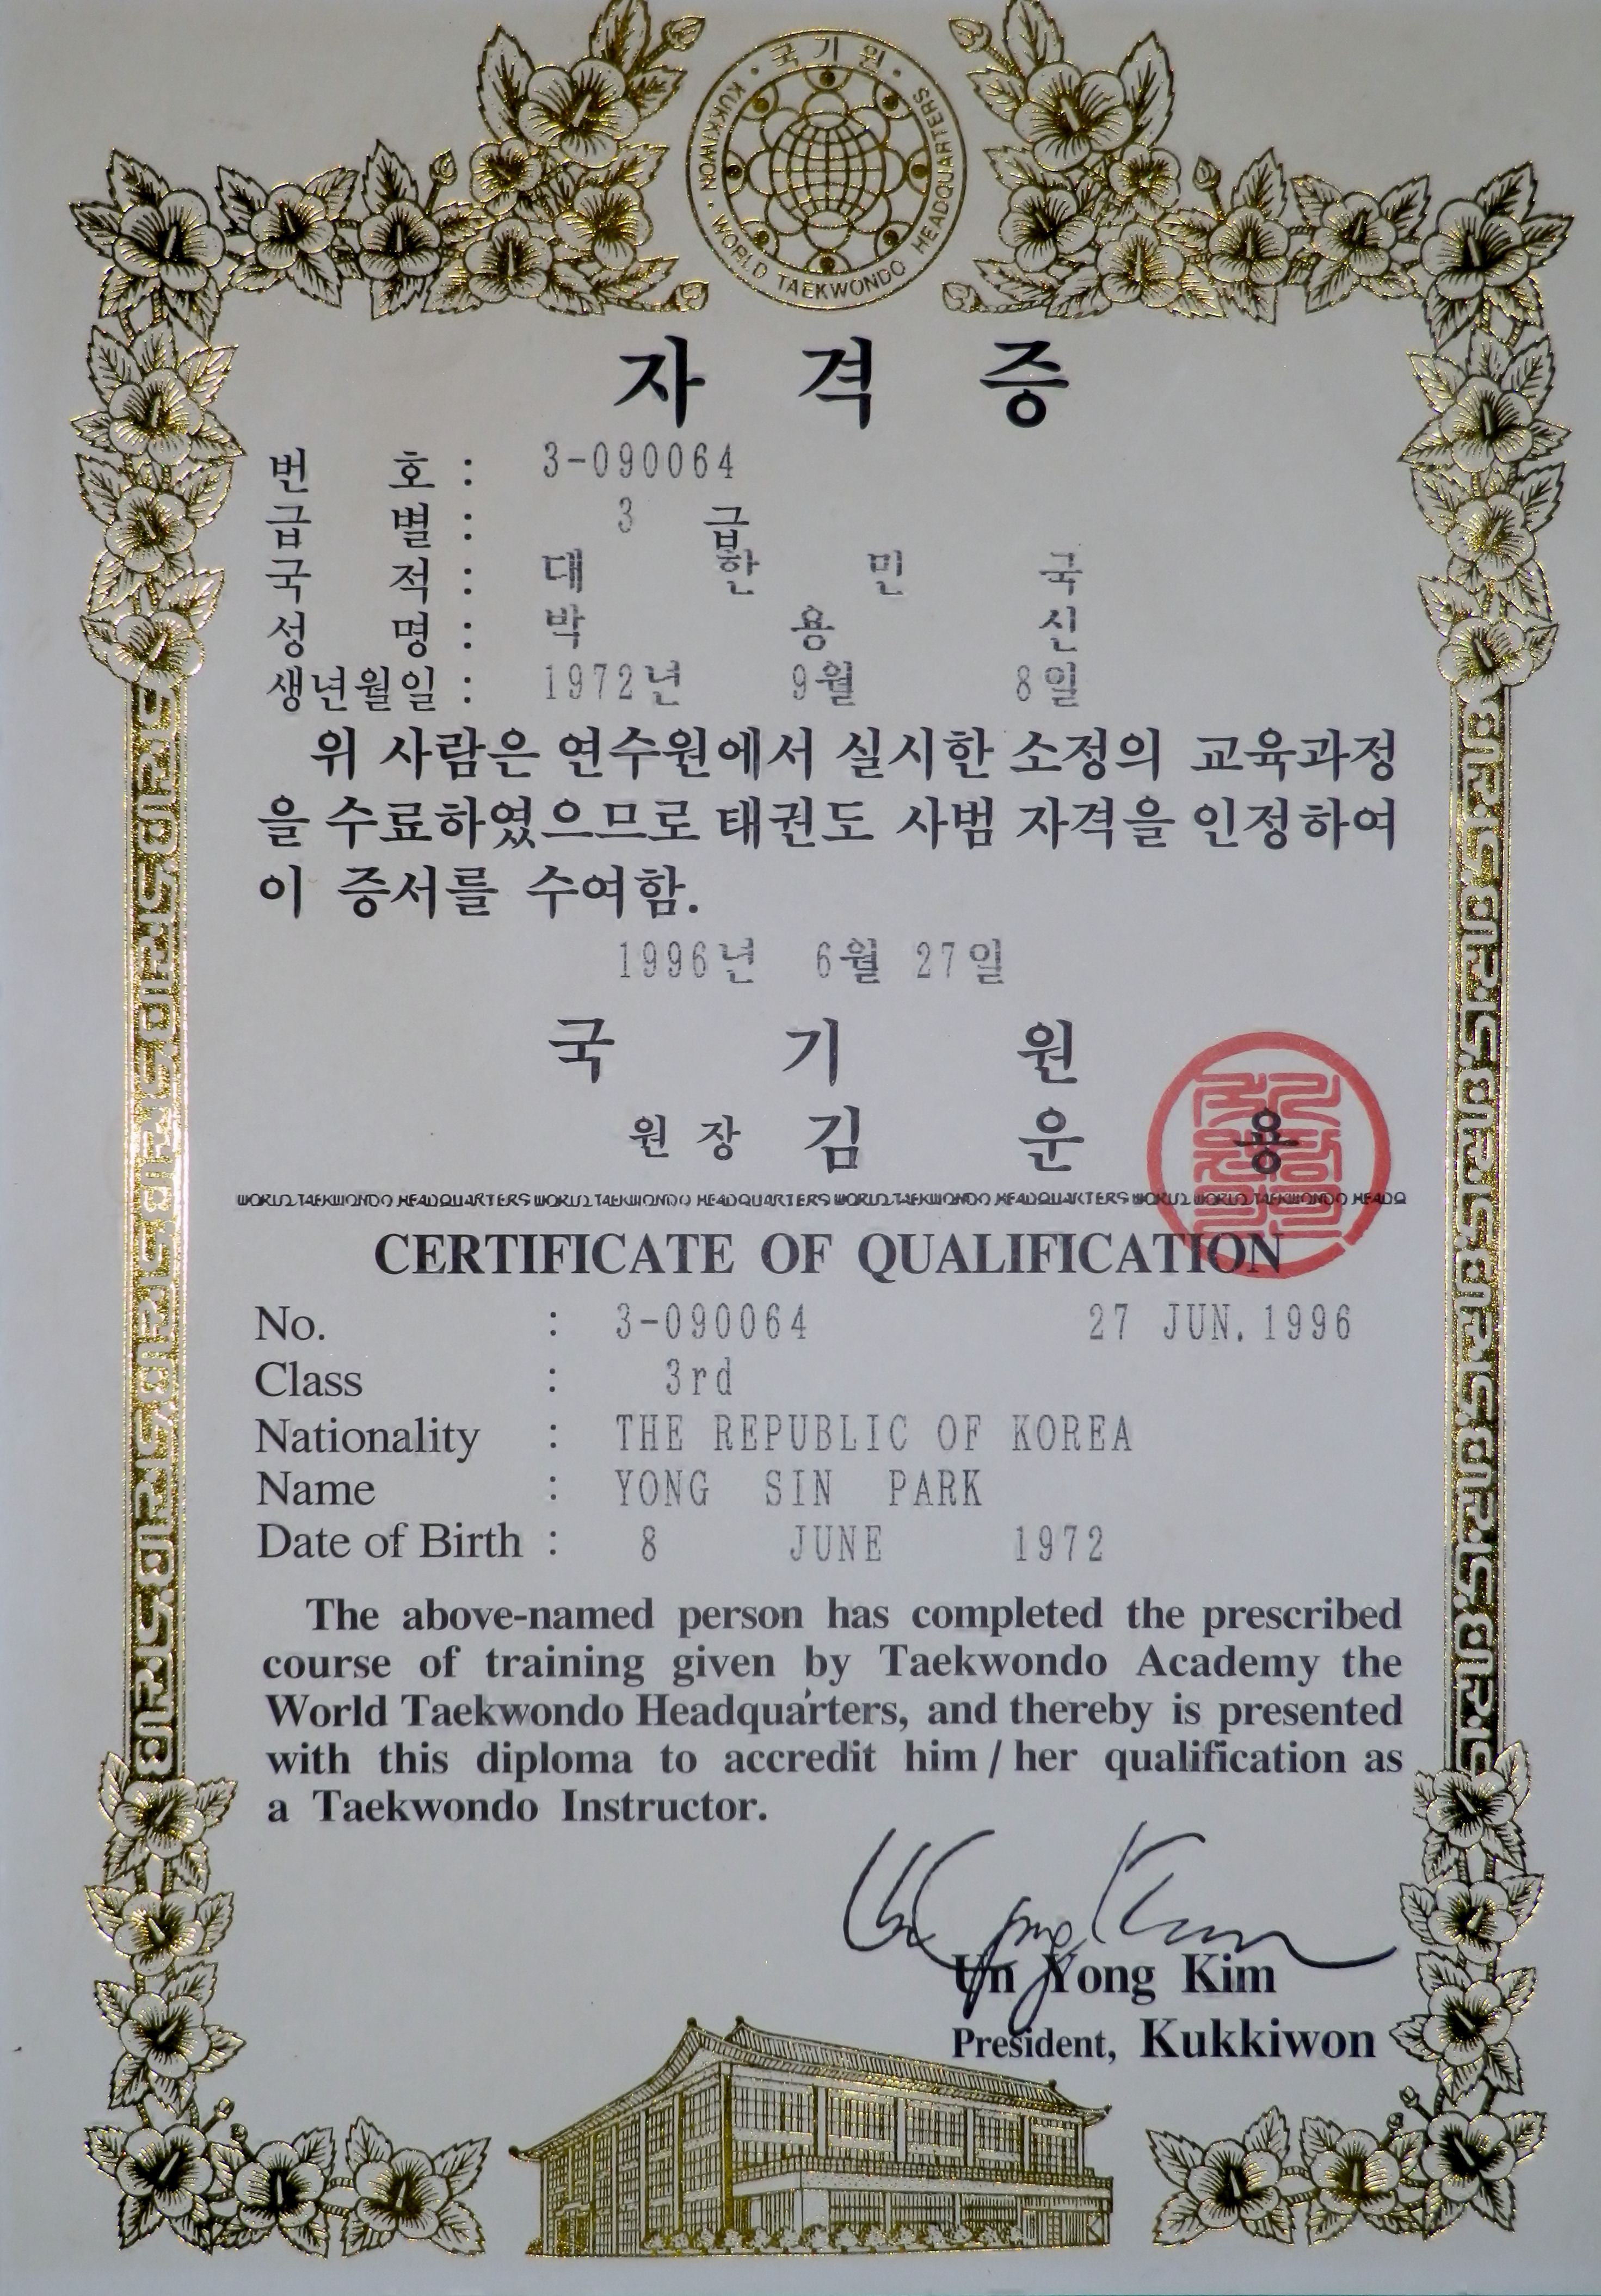 국기원
KUKKIWON · WORLD TAEKWONDO HEADQUARTERS
자 격 증
번 호 : 3-090064
급 별 : 3 급
국 적 : 대 한 민 국
성 명 : 박 용 신
생년월일 : 1972년 9월 8일
위 사람은 연수원에서 실시한 소정의 교육과정
을 수료하였으므로 태권도 사범 자격을 인정하여
이 증서를 수여함.
1996년 6월 27일
국 기 원
원 장 김 운 용
WORLD TAEKWONDO HEADQUARTERS WORLD TAEKWONDO HEADQUARTERS WORLD TAEKWONDO HEADQUARTERS WORLD WORLD TAEKWONDO HEADQ
CERTIFICATE OF QUALIFICATION
No. : 3-090064 27 JUN. 1996
Class : 3rd
Nationality : THE REPUBLIC OF KOREA
Name : YONG SIN PARK
Date of Birth : 8 JUNE 1972
The above-named person has completed the prescribed
course of training given by Taekwondo Academy the
World Taekwondo Headquarters, and thereby is presented
with this diploma to accredit him / her qualification as
a Taekwondo Instructor.
Un Yong Kim
Un Yong Kim
President, Kukkiwon